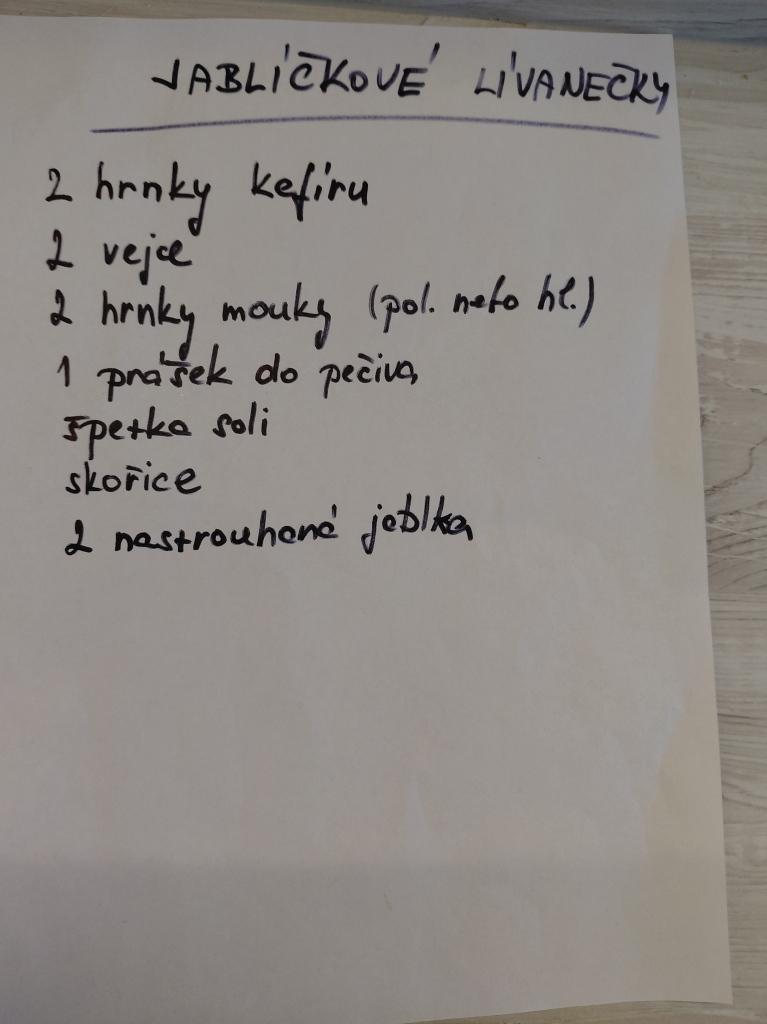 JABLÍČKOVÉ LÍVANEČKY
2 hrnky kefíru
2 vejce
2 hrnky mouky (pol. nebo hl.)
1 prášek do pečiva
špetka soli
skořice
2 nastrouhané jablka